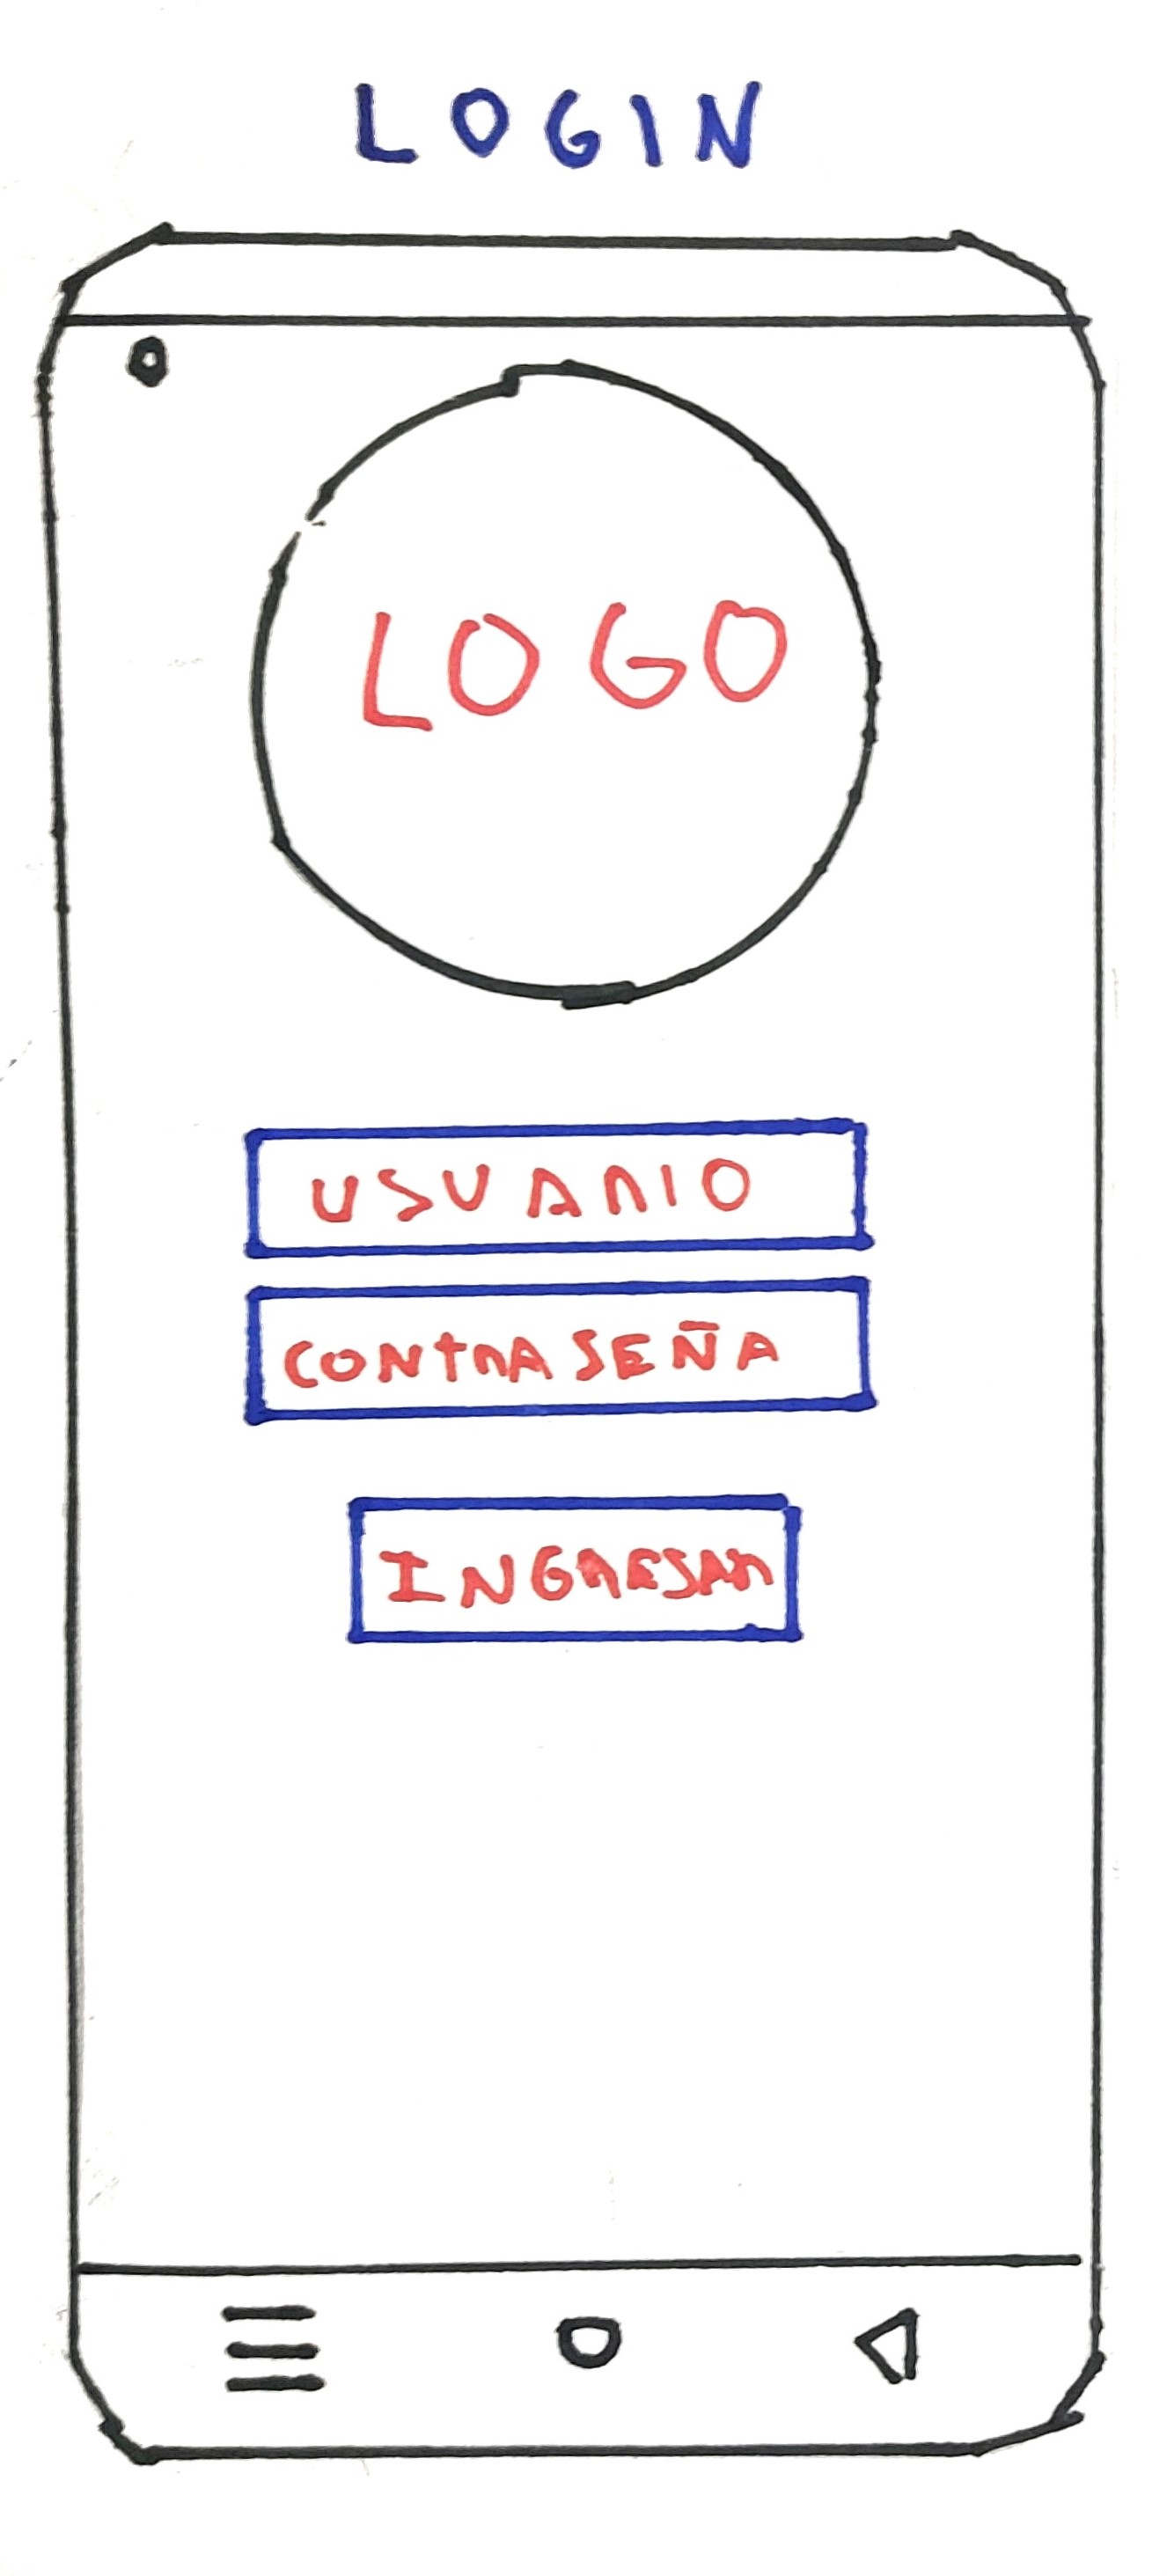 LOGIN
LOGO
USUARIO
CONTRASEÑA
INGRESAR